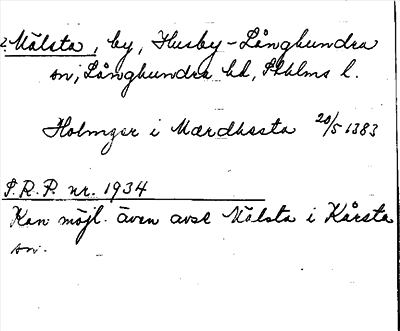 2. Mälsta, by, Husby-Långhundra
sn, Långhundra hd, Sthlms l.
Holmger i Mærdhssta 20/5 1383
S.R.P. nr. 1934
Kan möjl. även avse Mälsta i Kårsta
sn.